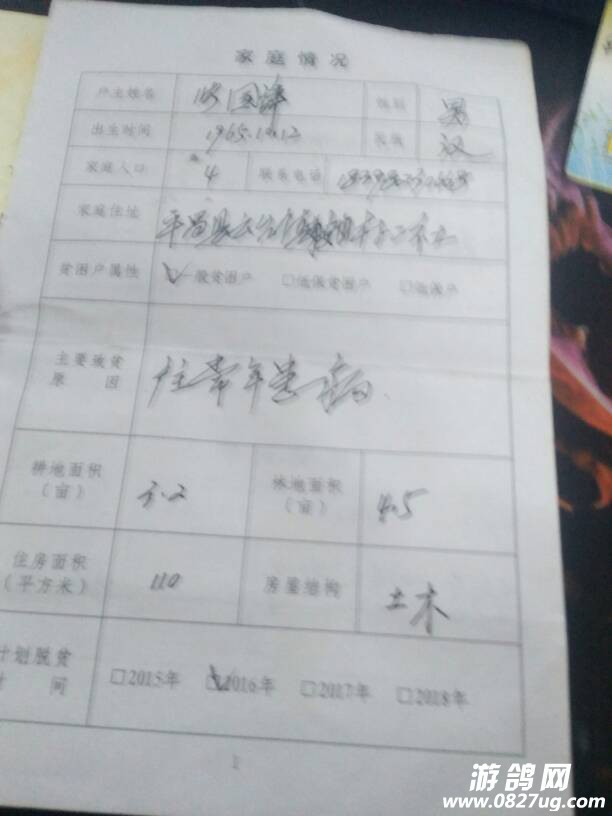 家庭情况
户主姓名 国 性别 男
出生时间 1965.10.12 民族 汉
家庭人口 4 联系电话
家庭住址 平昌县
贫困户属性 ☑一般贫困户 □低保贫困户 □低保户
主要致贫 常年患病
原 因
耕地面积 3.2 林地面积 4.5
(亩) (亩)
住房面积 110 房屋结构 土木
(平方米)
计划脱贫 □2015年 ☑2016年 □2017年 □2018年
时 间
1
游鸽网
www.0827ug.com